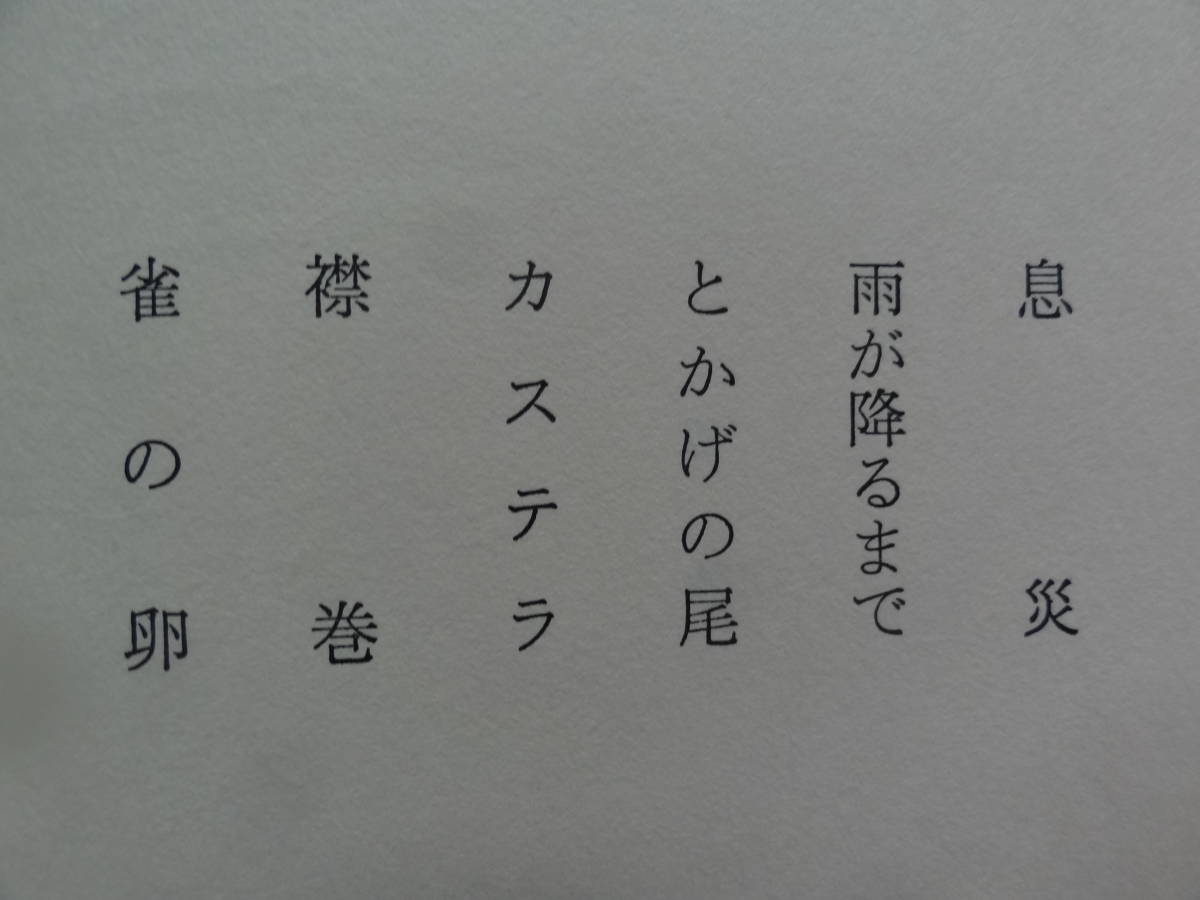 息災
雨が降るまで
とかげの尾
カステラ
襟巻
雀の卵